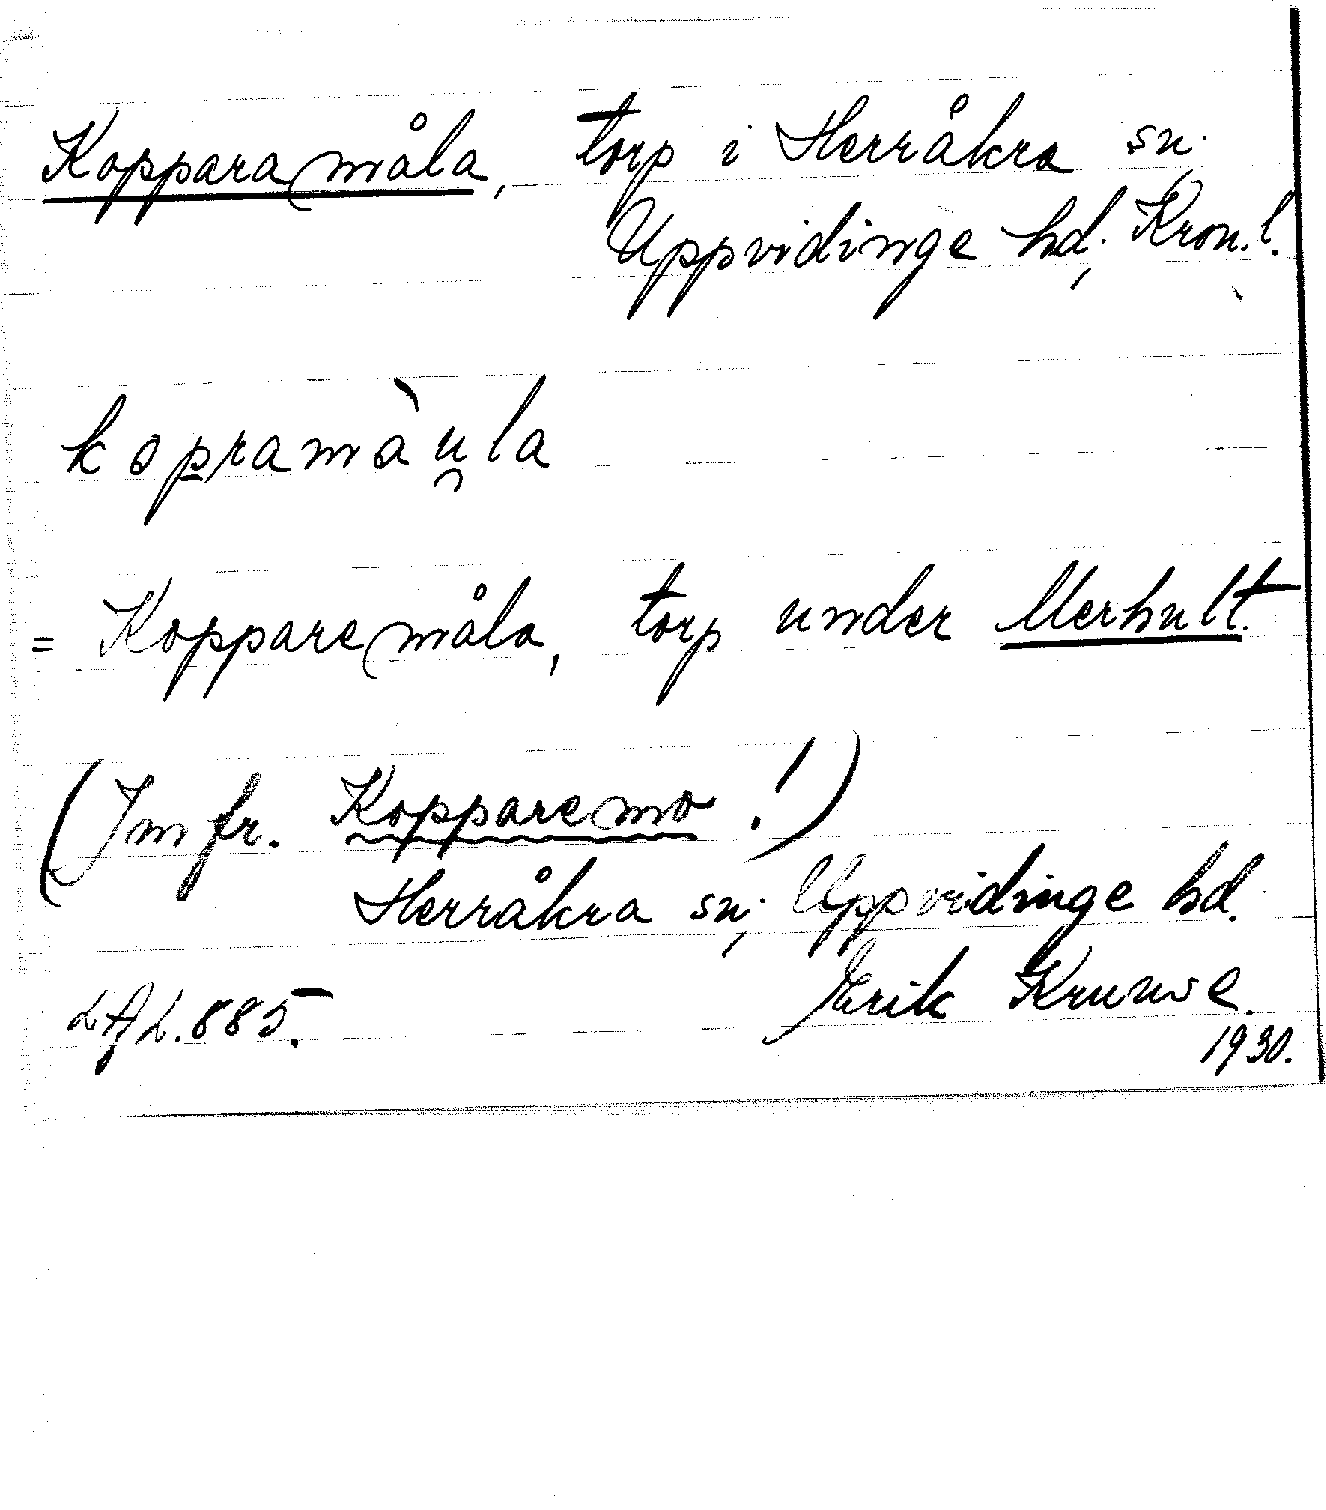 Koppara(måla, torp i Herråkra sn.
Uppvidinge hd., Kron.l.
kopramàu̯la
= Koppare(måla, torp under Merhult.
(Jmfr. Kopparemo!)
Herråkra sn., Uppvidinge hd.
Erik Kruuse.
1930.